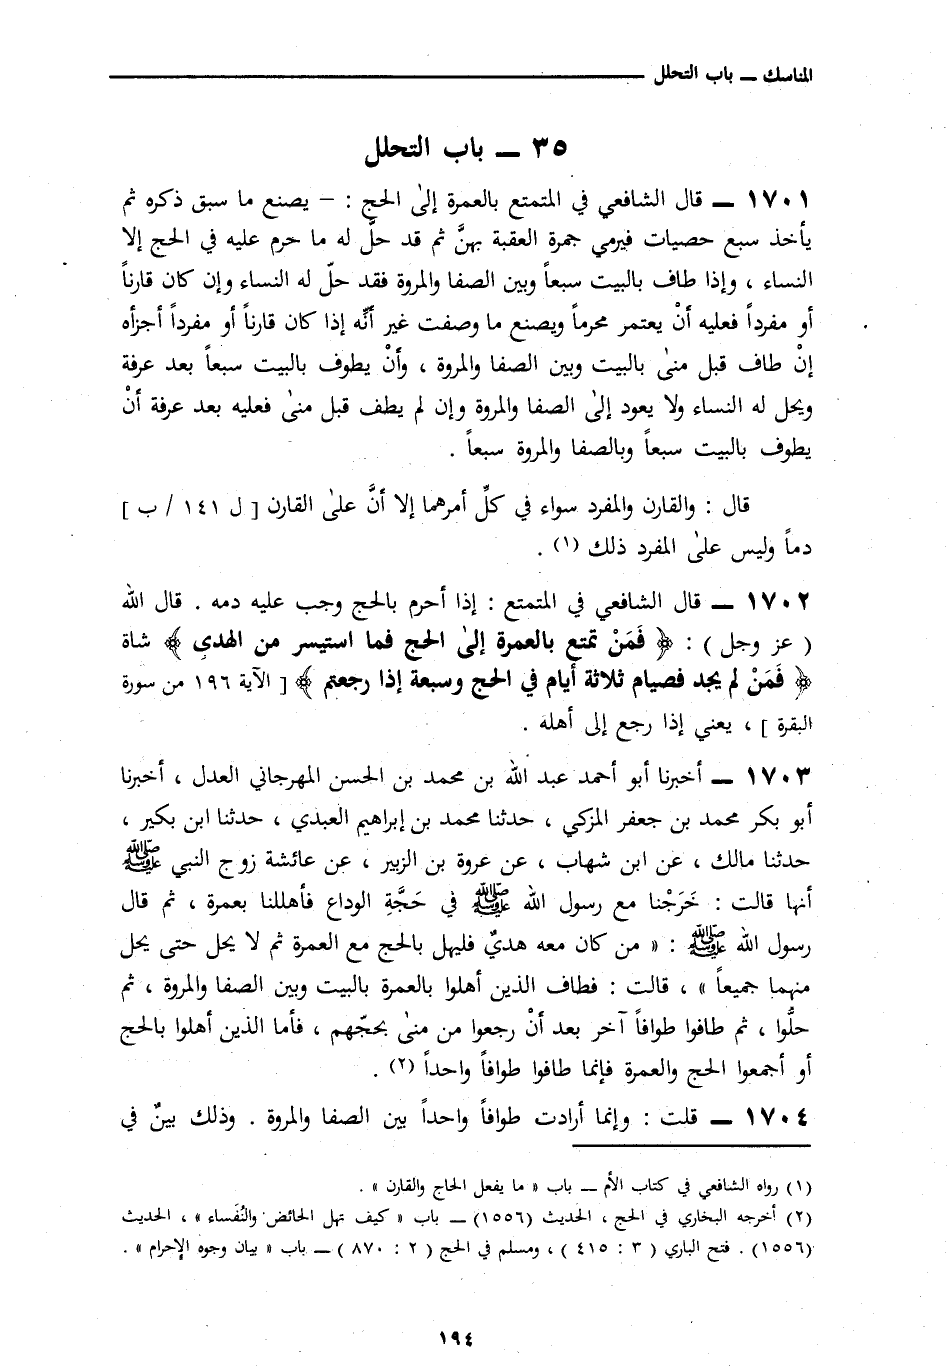 المناسك ــ باب التحلل
٣٥ ــ باب التحلل
١٧٠١ ــ قال الشافعي في المتمتع بالعمرة إلىٰ الحج : – يصنع ما سبق ذكره ثم
يأخذ سبع حصيات فيرمي جمرة العقبة بهنَّ ثم قد حلَّ له ما حرم عليه في الحج إلا
النساء ، وإذا طاف بالبيت سبعاً وبين الصفا والمروة فقد حلّ له النساء وإن كان قارناً
أو مفرداً فعليه أنْ يعتمر محرماً ويصنع ما وصفت غير أنَّه إذا كان قارناً أو مفرداً أجزأه
إنْ طاف قبل منىٰ بالبيت وبين الصفا والمروة ، وأنْ يطوف بالبيت سبعاً بعد عرفة
ويحل له النساء ولا يعود إلىٰ الصفا والمروة وإن لم يطف قبل منىٰ فعليه بعد عرفة أنْ
يطوف بالبيت سبعاً وبالصفا والمروة سبعاً .
قال : والقارن والمفرد سواء في كلِّ أمرهما إلا أنَّ علىٰ القارن [ ل ١٤١ / ب ]
دماً وليس علىٰ المفرد ذلك (١) .
١٧٠٢ ــ قال الشافعي في المتمتع : إذا أحرم بالحج وجب عليه دمه . قال الله
( عز وجل ) : ﴿ فَمَنْ تمتع بالعمرة إلىٰ الحج فما استيسر من الهدي ﴾ شاة
﴿ فَمَنْ لم يجد فصيام ثلاثة أيام في الحج وسبعة إذا رجعتم ﴾ [ الآية ١٩٦ من سورة
البقرة ] ، يعني إذا رجع إلى أهله .
١٧٠٣ ــ أخبرنا أبو أحمد عبد الله بن محمد بن الحسن المهرجاني العدل ، أخبرنا
أبو بكر محمد بن جعفر المزكي ، حدثنا محمد بن إبراهيم العبدي ، حدثنا ابن بكير ،
حدثنا مالك ، عن ابن شهاب ، عن عروة بن الزبير ، عن عائشة زوج النبي ﷺ
أنها قالت : خَرَجْنا مع رسول الله ﷺ في حَجَّةِ الوداع فأهللنا بعمرة ، ثم قال
رسول الله ﷺ : « من كان معه هديٌ فليهل بالحج مع العمرة ثم لا يحل حتى يحل
منهما جميعاً » ، قالت : فطاف الذين أهلوا بالعمرة بالبيت وبين الصفا والمروة ، ثم
حلُّوا ، ثم طافوا طوافاً آخر بعد أنْ رجعوا من منىٰ بحجّهم ، فأما الذين أهلوا بالحج
أو أجمعوا الحج والعمرة فإنما طافوا طوافاً واحداً (٢) .
١٧٠٤ ــ قلت : وإنما أرادت طوافاً واحداً بين الصفا والمروة . وذلك بينٌ في
(١) رواه الشافعي في كتاب الأم ــ باب « ما يفعل الحاج والقارن » .
(٢) أخرجه البخاري في الحج ، الحديث (١٥٥٦) ــ باب « كيف تهل الحائض والنُفَساء » ، الحديث
(١٥٥٦) . فتح الباري ( ٣ : ٤١٥ ) ، ومسلم في الحج ( ٢ : ٨٧٠ ) ــ باب « بيان وجوه الإحرام » .
١٩٤